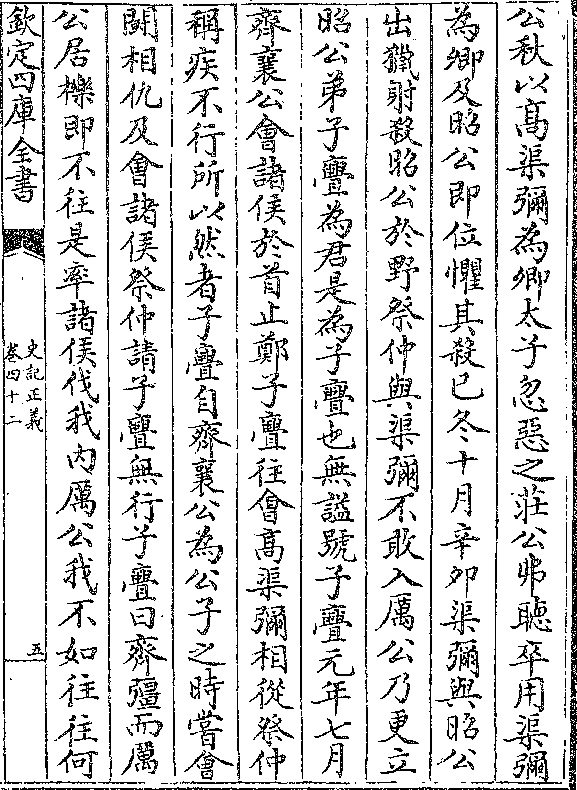 公秋以高渠彌為卿太子忽惡之莊公弗聽卒用渠彌
為卿及昭公即位懼其殺已冬十月辛卯渠彌與昭公
出獵射殺昭公於野祭仲與渠彌不敢入厲公乃更立
昭公弟子亹為君是為子亹也無諡號子亹元年七月
齊襄公會諸侯於首止鄭子亹往會高渠彌相從祭仲
稱疾不行所以然者子亹自齊襄公為公子之時嘗會
鬬相仇及會諸侯祭仲請子亹無行子亹曰齊彊而厲
公居櫟即不往是率諸侯伐我內厲公我不如往往何
欽定四庫全書
史記正義
卷四十二
五